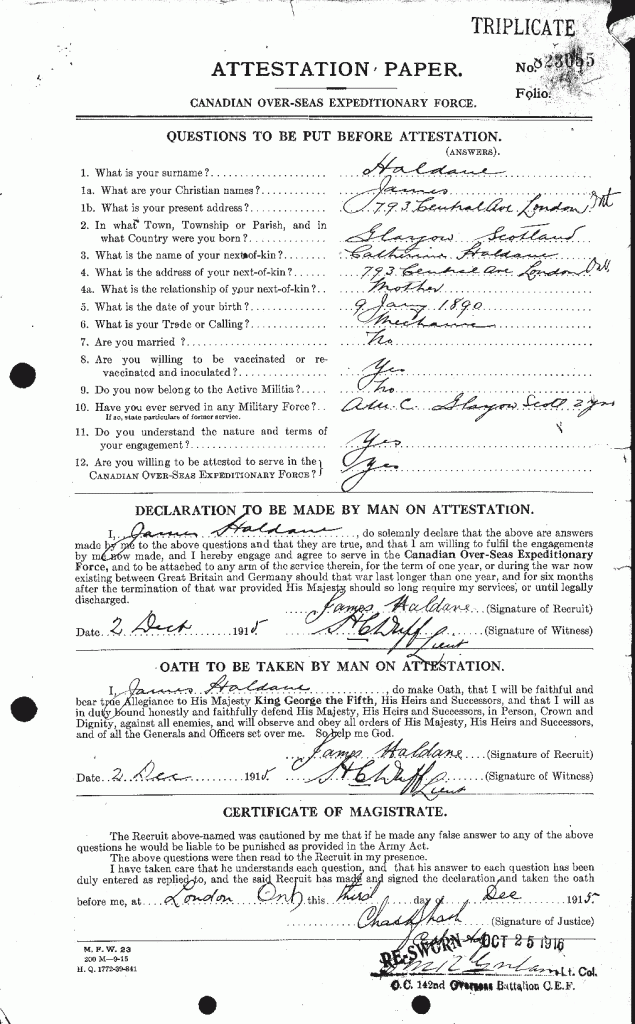 TRIPLICATE
ATTESTATION PAPER.
No. 823055
Folio.
CANADIAN OVER-SEAS EXPEDITIONARY FORCE.
QUESTIONS TO BE PUT BEFORE ATTESTATION.
(ANSWERS).
1. What is your surname? Haldane
1a. What are your Christian names? James
1b. What is your present address? 793 Central Ave London Ont
2. In what Town, Township or Parish, and in
what Country were you born? Glasgow Scotland
3. What is the name of your next-of-kin? Catherine Haldane
4. What is the address of your next-of-kin? 793 Central Ave London Ont
4a. What is the relationship of your next-of-kin? Mother
5. What is the date of your birth? 9 Jany 1890
6. What is your Trade or Calling? Mechanic
7. Are you married? No
8. Are you willing to be vaccinated or re-
vaccinated and inoculated? Yes
9. Do you now belong to the Active Militia? No
10. Have you ever served in any Military Force? C. Glasgow Scott 2 yrs
If so, state particulars of former service.
11. Do you understand the nature and terms of
your engagement? Yes
12. Are you willing to be attested to serve in the
CANADIAN OVER-SEAS EXPEDITIONARY FORCE? Yes
DECLARATION TO BE MADE BY MAN ON ATTESTATION.
I, James Haldane, do solemnly declare that the above are answers
made by me to the above questions and that they are true, and that I am willing to fulfil the engagements
by me now made, and I hereby engage and agree to serve in the Canadian Over-Seas Expeditionary
Force, and to be attached to any arm of the service therein, for the term of one year, or during the war now
existing between Great Britain and Germany should that war last longer than one year, and for six months
after the termination of that war provided His Majesty should so require my services, or until legally
discharged.
James Haldane (Signature of Recruit)
Date 2 Dect 1915 Duff Lieut (Signature of Witness)
OATH TO BE TAKEN BY MAN ON ATTESTATION.
I, James Haldane, do make Oath, that I will be faithful and
bear true Allegiance to His Majesty King George the Fifth, His Heirs and Successors, and that I will as
in duty bound honestly and faithfully defend His Majesty, His Heirs and Successors, in Person, Crown and
Dignity, against all enemies, and will observe and obey all orders of His Majesty, His Heirs and Successors,
and of all the Generals and Officers set over me. So help me God.
James Haldane (Signature of Recruit)
Date 2 Dec 1915 Duff Lieut (Signature of Witness)
CERTIFICATE OF MAGISTRATE.
The Recruit above-named was cautioned by me that if he made any false answer to any of the above
questions he would be liable to be punished as provided in the Army Act.
The above questions were then read to the Recruit in my presence.
I have taken care that he understands each question, and that his answer to each question has been
duly entered as replied to, and the said Recruit has made and signed the declaration and taken the oath
before me, at London Ont this third day of Dec 1915
(Signature of Justice)
RE-SWORN OCT 25 1916
M. F. W. 23
200 M—9-15
H. Q. 1772-39-841
Lt. Col.
O.C. 142nd Overseas Battalion C.E.F.